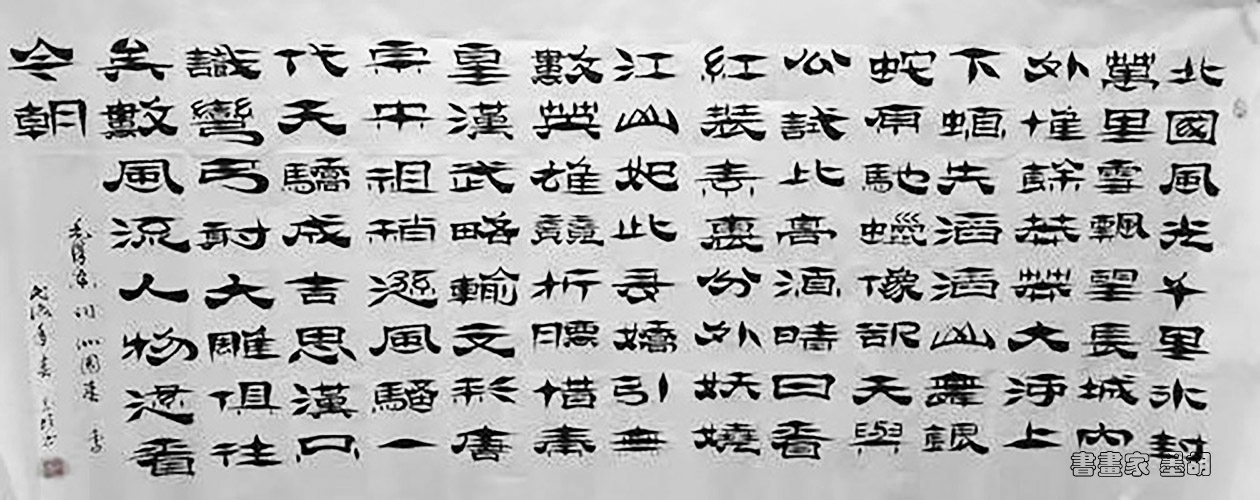 北國風光千里冰封
萬里雪飄望長城内
外惟餘莽莽大河上
下頓失滔滔山舞銀
蛇原馳蠟像欲天與
公試比高湏晴日看
紅裝素裹份外妖嬈
江山如此多嬌引無
數英雄競折腰惜秦
皇漢武略輸文彩唐
宗宋祖稍遜風騷一
代天驕成吉思漢只
識彎弓射大雕俱往
矣數風流人物還看
今朝
毛澤東詞沁園春雪
戊戌年春
書畫家 墨胡